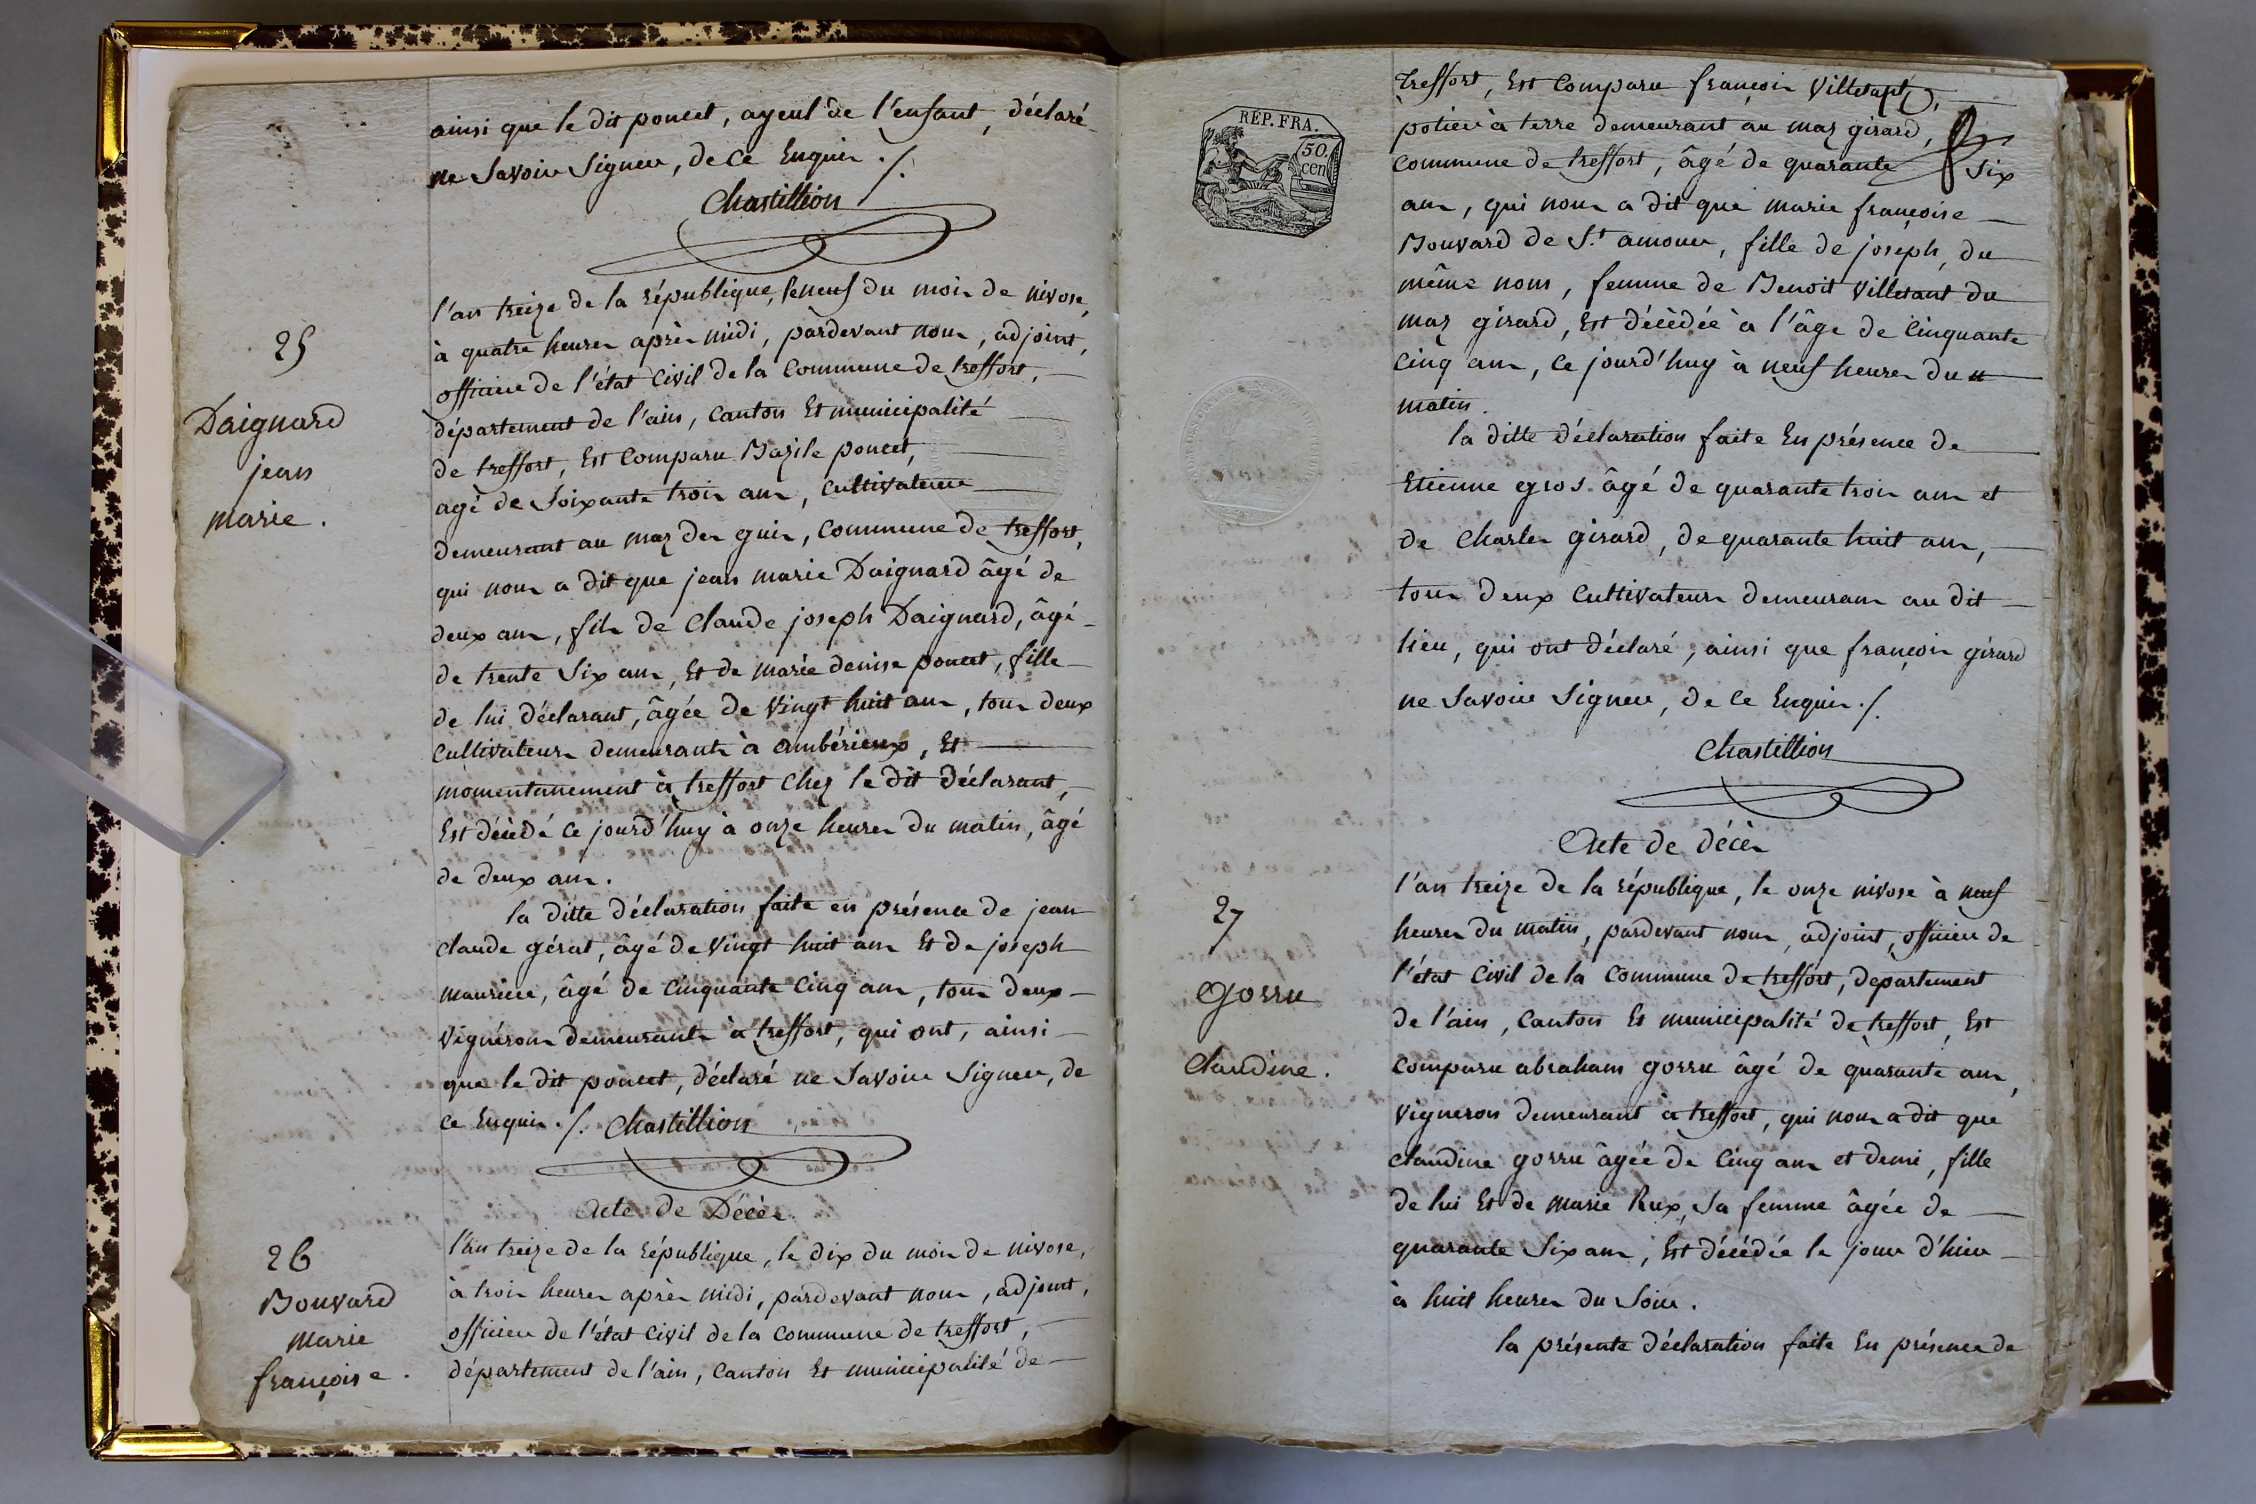 ainsi que le dit poncet, ayeul de l'enfant, déclaré
ne Savoir Signer, de ce Enquis ./.
Chastillion
25
Daignard
jean
marie.
l'an treize de la république, le neuf du mois de nivose,
à quatre heures après midi, pardevant nous, adjoint,
officier de l'état Civil de la Commune de treffort,
département de l'ain, Canton Et municipalité
de treffort, Est Comparu Bazile poncet,
agé de Soixante trois ans, Cultivateur
demeurant au maz des guis, Commune de treffort,
qui nous a dit que jean marie Daignard âgé de
deux ans, fils de Claude joseph Daignard, âgé
de trente Six ans, Et de marie denise poncet, fille
de lui déclarant, âgée de Vingt huit ans, tous deux
Cultivateurs demeurants à ambérieux, Et
momentanement à treffort Chez le dit déclarant,
Est décédé Ce jourd'huy à onze heures du matin, âgé
de deux ans.
la ditte déclaration faite en présence de jean
claude gérat, âgé de Vingt huit ans Et de joseph
maurice, âgé de Cinquante Cinq ans, tous deux
Vignérons demeurants à treffort, qui ont, ainsi
que le dit poncet, déclaré ne Savoir Signer, de
ce Enquis ./. Chastillion
Acte de Décès.
26
Bouvard
marie
françoise.
l'an treize de la république, le dix du mois de nivose,
à trois heures après midi, pardevant nous, adjoint,
officier de l'état civil de la commune de treffort,
département de l'ain, Canton Et municipalité de
RÉP. FRA.
50.
cen
treffort, Est Comparu françois Villetant,
potier à terre demeurant au maz girard,
Commune de treffort, âgé de quarante Six
ans, qui nous a dit que marie françoise
Bouvard de S.t amour, fille de joseph, du
même nom, femme de Benoit Villetant du
maz girard, Est décédée à l'âge de Cinquante
Cinq ans, Ce jourd'huy à neuf heures du
matin.
la ditte déclaration faite En présence de
Etienne gros âgé de quarante trois ans et
de Charles girard, de quarante huit ans,
tous deux Cultivateurs demeurans au dit
lieu, qui ont déclaré, ainsi que françois girard
ne Savoir Signer, de Ce Enquis ./.
Chastillion
Acte de décès
27
Gorru
Claudine.
l'an treize de la république, le onze nivose à neuf
heures du matin, pardevant nous, adjoint, officier de
l'état Civil de la Commune de treffort, departement
de l'ain, Canton Et municipalité de treffort, Est
Comparu abraham gorru âgé de quarante ans,
Vigneron demeurant à treffort, qui nous a dit que
claudine gorru âgée de Cinq ans et demi, fille
de lui Et de marie Rux, Sa femme âgée de
quarante Six ans, Est décédée le jour d'hier
à huit heures du Soir.
la présente déclaration faite En présence de